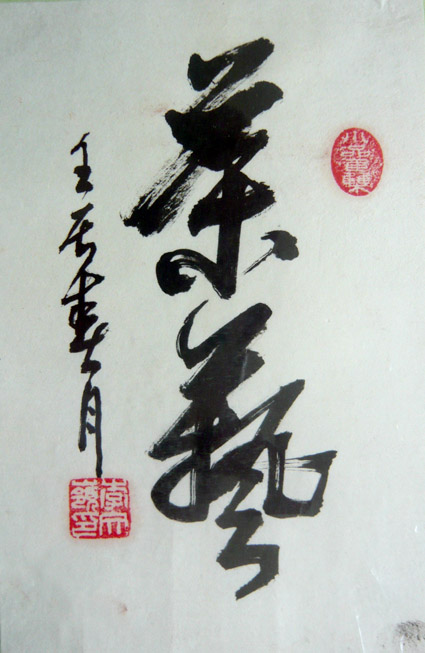 茶藝
壬辰春月